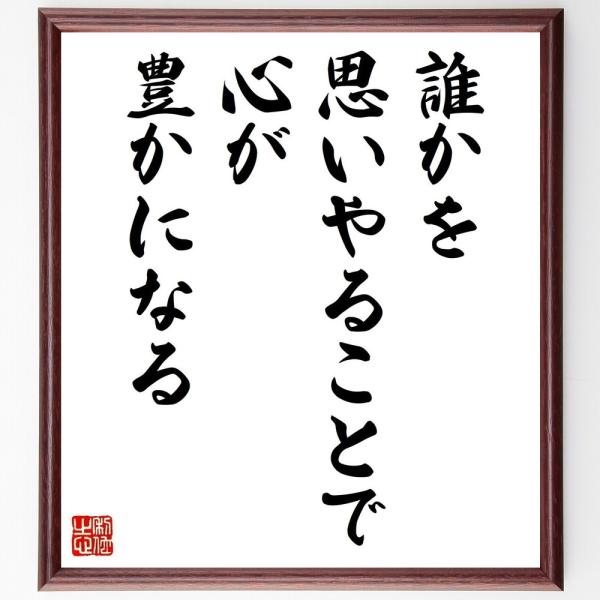 誰かを
思いやることで
心が
豊かになる